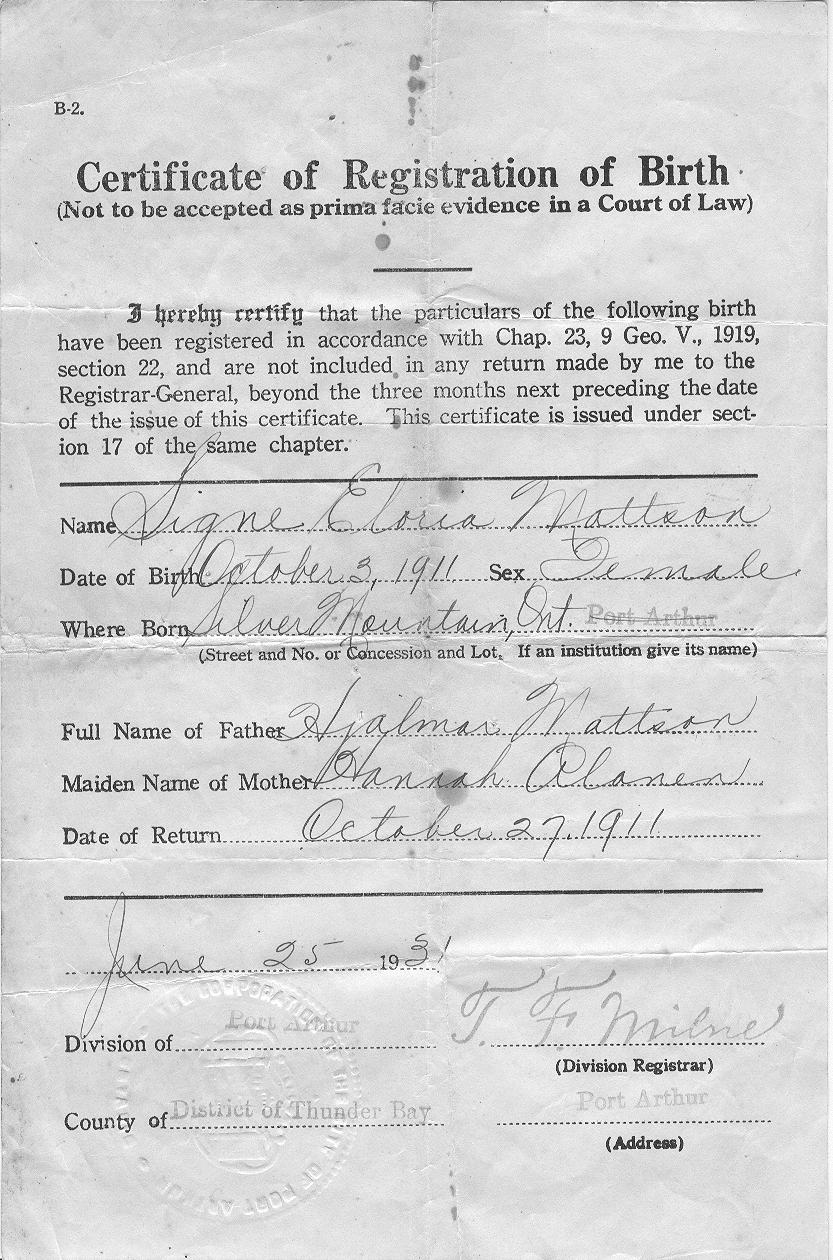 B-2.
Certificate of Registration of Birth
(Not to be accepted as prima facie evidence in a Court of Law)
I hereby certify that the particulars of the following birth
have been registered in accordance with Chap. 23, 9 Geo. V., 1919,
section 22, and are not included in any return made by me to the
Registrar-General, beyond the three months next preceding the date
of the issue of this certificate. This certificate is issued under sect-
ion 17 of the same chapter.
Name Signe Eloria Mattson
Date of Birth October 3, 1911 Sex Female
Where Born Silver Mountain, Ont. Port Arthur
(Street and No. or Concession and Lot. If an institution give its name)
Full Name of Father Hjalmar Mattson
Maiden Name of Mother Hannah Alanen
Date of Return October 27, 1911
June 25 1931
Division of Port Arthur T. F. Milne
(Division Registrar)
County of District of Thunder Bay Port Arthur
(Address)
THE CORPORATION OF THE OF PORT ARTHUR